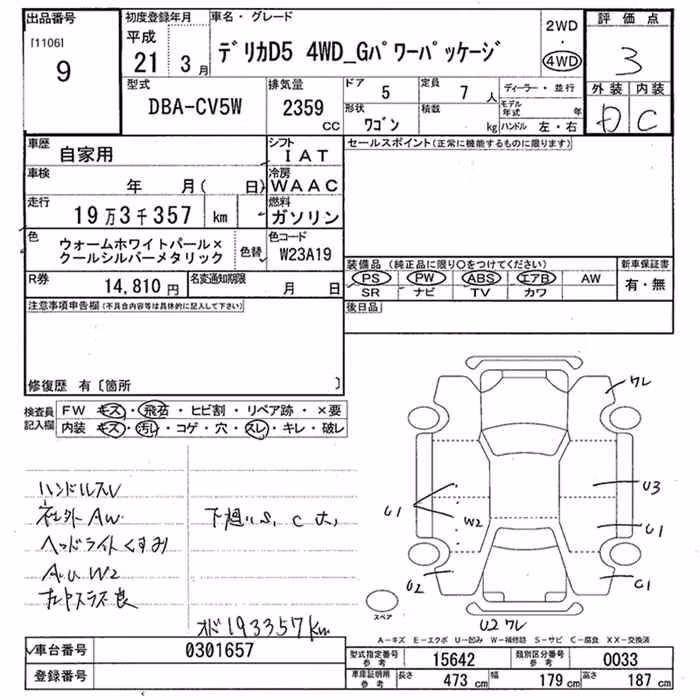 出品番号
[1106]
9
初度登録年月
平成
21 3月
車名・グレード
ﾃﾞﾘｶD5 4WD_Gﾊﾟﾜｰﾊﾟｯｹｰｼﾞ
2WD
・
4WD
評価点
3
外装 内装
D C
型式
DBA-CV5W
排気量
2359
CC
ドア
5
定員
7人
形状
ﾜｺﾞﾝ
積数
kg
ディーラー・並行
モデル年式 年
ハンドル 左・右
車歴
自家用
シフト
IAT
車検
年 月( 日)
冷房
WAAC
走行
19万3千357 km
燃料
ガソリン
色
ウォームホワイトパール×
クールシルバーメタリック
色替
色コード
W23A19
R券
14,810円
名変通知期限
月 日
セールスポイント(正常に機能するものに限ります)
装備品(純正品に限り○をつけてください)
PS PW ABS エアB AW
SR ナビ TV カワ
新車保証書
有・無
後日品
注意事項申告欄(不具合内容等は具体的に記入して下さい)
修復歴 有〔箇所 〕
検査員
記入欄
FW キズ・飛石・ヒビ割・リペア跡・×要
内装 キズ・汚れ・コゲ・穴・スレ・キレ・破レ
ハンドルスレ
社外AW
ヘッドライトくすみ
AU W2
下廻りS, C大,
オド193357km
ワレ
U1
W2
U3
U1
U2
C1
U2ワレ
スペア
A-キズ E-エクボ U-凹み W-補修跡 S-サビ C-腐食 XX-交換済
車台番号
0301657
登録番号
型式指定番号
参考
15642
類別区分番号
参考
0033
車庫証明用
参考
長さ
473cm
幅
179cm
高さ
187cm